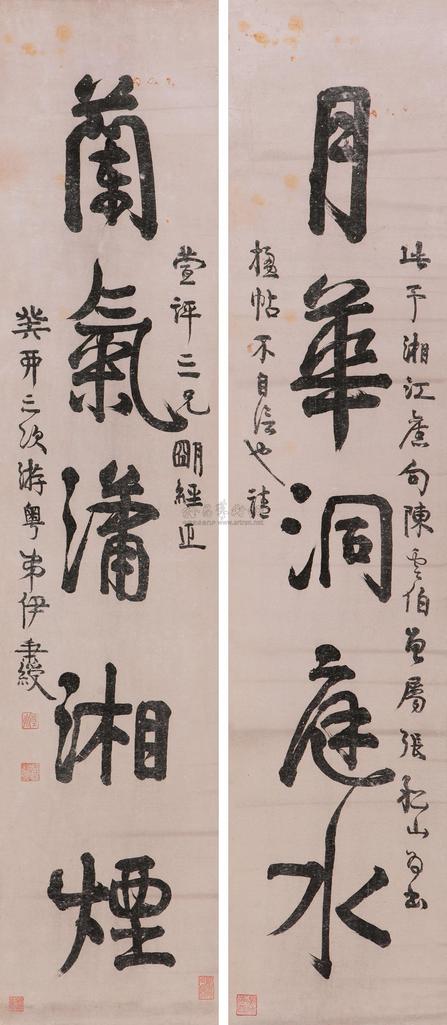 月華洞庭水
此予湘江舊句陳雲伯曾屬張船山為書
楹帖不自信也請
蘭氣瀟湘煙
堂評三兄明經正
癸酉二次游粵弟伊秉綬